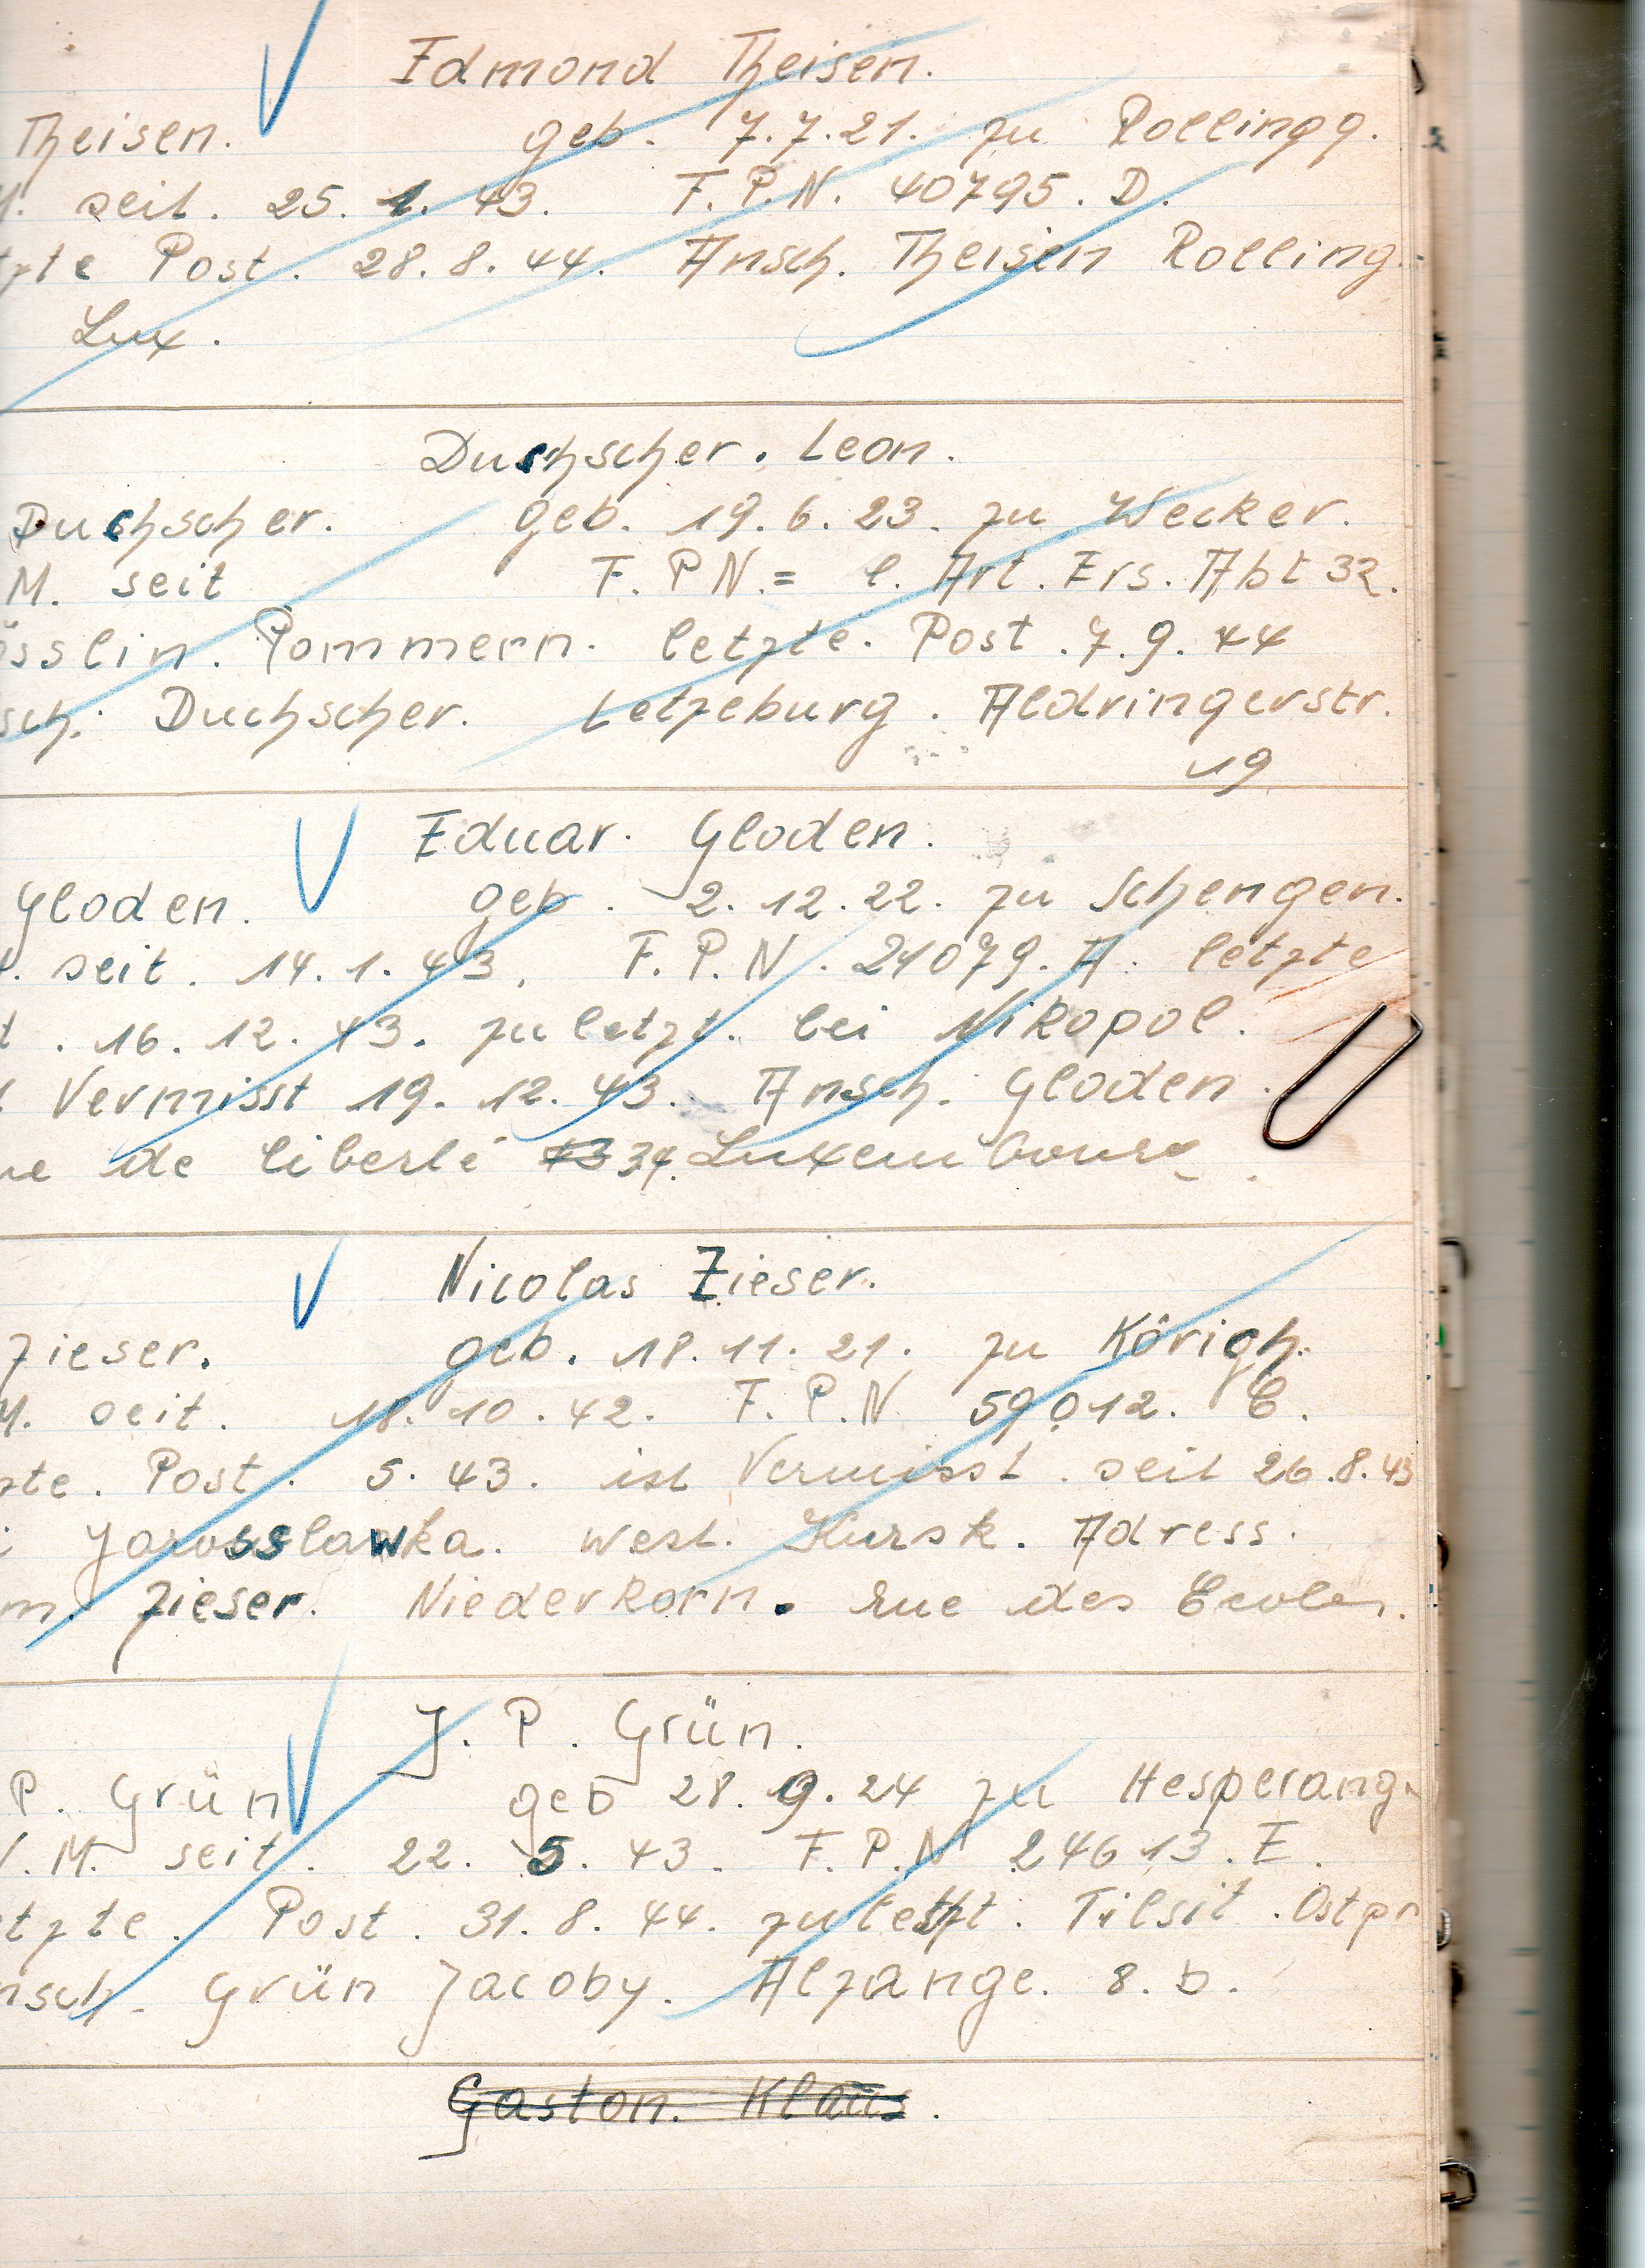 Edmond Theisen.
Theisen. geb. 7.7.21. zu Rollingg.
M. seit. 25. 1. 43. F.P.N. 40795. D.
tzte Post. 28. 8. 44. Ansch. Theisen Rolling.
Lux.
Duchscher. Leon.
Duchscher. geb. 19. 6. 23. zu Wecker.
M. seit F. P N. = l. Art. Ers. Abt 32.
össlin. Pommern. letzte. Post. 7. 9. 44
sch. Duchscher. Letzeburg. Aldringerstr.
19
Eduar. Gloden.
Gloden. geb. 2. 12. 22. zu Schengen.
seit. 14. 1. 43. F. P. N. 21079. A. letzte
t. 16. 12. 43. zuletzt. bei Nikopol.
Vermisst 19. 12. 43. Ansch. Gloden.
ue de liberté 34. Luxembourg.
Nicolas Zieser.
Zieser. geb. 18. 11. 21. zu Körich.
M. seit. 18. 10. 42. F. P. N. 59012. C.
zte. Post. 5. 43. ist Vermisst. seit 26. 8. 43
Jarosslawka. west. Kursk. Adress.
m. Zieser. Niederkorn. rue des Ecoles.
J. P. Grün.
P. Grün geb 28. 9. 24 zu Hesperang.
M. seit. 22. 5. 43. F. P. N 24613. E.
etzte. Post. 31. 8. 44. zuletzt. Tilsit. Ostpr
nsch. Grün Jacoby. Alzange. 8. b.
Gaston. Klaus.